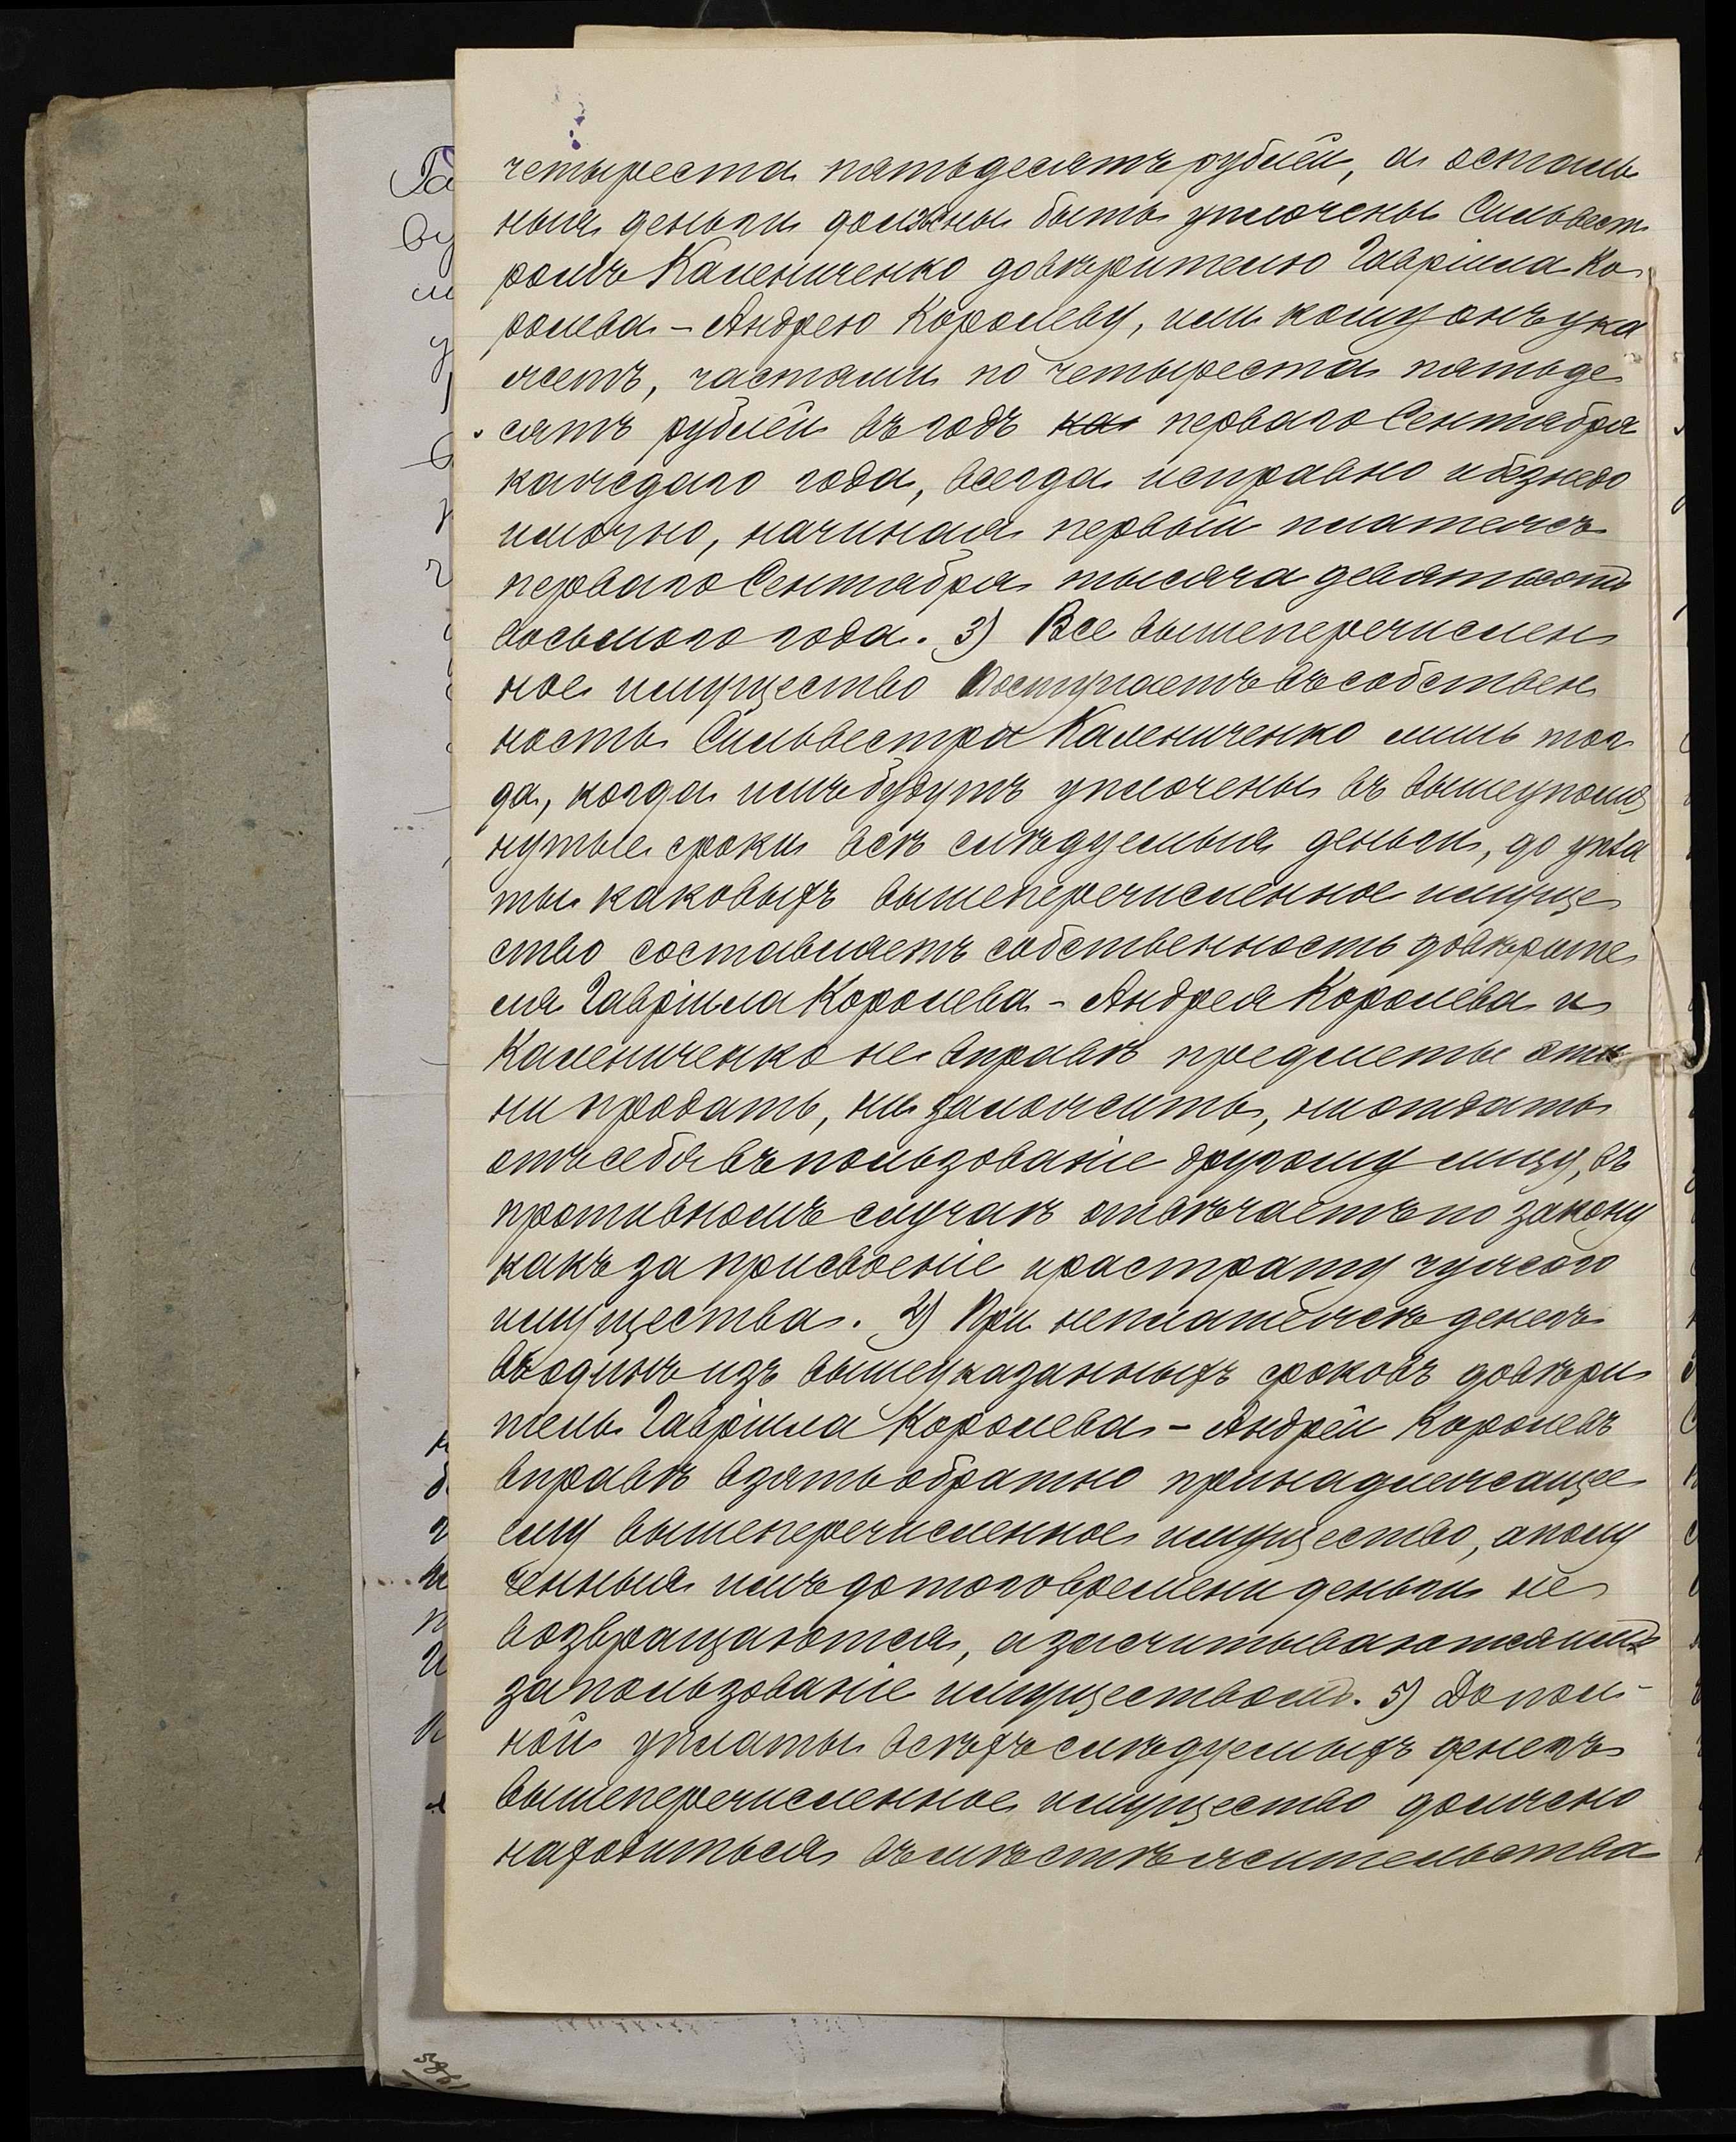 четыреста пятьдесятъ рублей, а осталь
ныя деньги должны быть уплочены Сильвест
ромъ Калениченко довѣрителю Гавріила Ко
ролева - Андрею Королеву, или кому онъ ука
жетъ, частями по четыреста пятьде
сятъ рублей въ годъ ка перваго Сентября
каждаго года, всегда исправно и безнедо
имочно, начиная первый платежъ
перваго Сентября тысяча девятьсотъ
восьмого года. 3) Все вышеперечислен
ное имущество поступаетъ въ собствен
ность Сильвестра Калениченко лишь тог
да, когда имъ будутъ уплочены въ вышеупомя
нутые сроки всѣ слѣдуемыя деньги, до упла
ты каковыхъ вышеперечисленное имуще
ство составляетъ собственность довѣрите
ля Гавріила Королева - Андрея Королева и
Калениченко не вправѣ предметы эти
ни продать, ни заложить, ни отдать
отъ себя въ пользованіе другому лицу, въ
противномъ случаѣ отвѣчаетъ по закону
какъ за присвоеніе и растрату чужого
имущества. 4) При неплатежѣ денегъ
въ одинъ изъ вышеуказанныхъ сроковъ довѣри
тель Гавріила Королева - Андрей Королевъ
вправѣ взять обратно принадлежащее
ему вышеперечисленное имущество, а полу
ченныя имъ до того времени деньги не
возвращаются, а засчитываются имъ
за пользованіе имуществомъ. 5) До пол-
ной уплаты всѣхъ слѣдуемыхъ денегъ
вышеперечисленное имущество должно
находиться въ мѣстѣ жительства